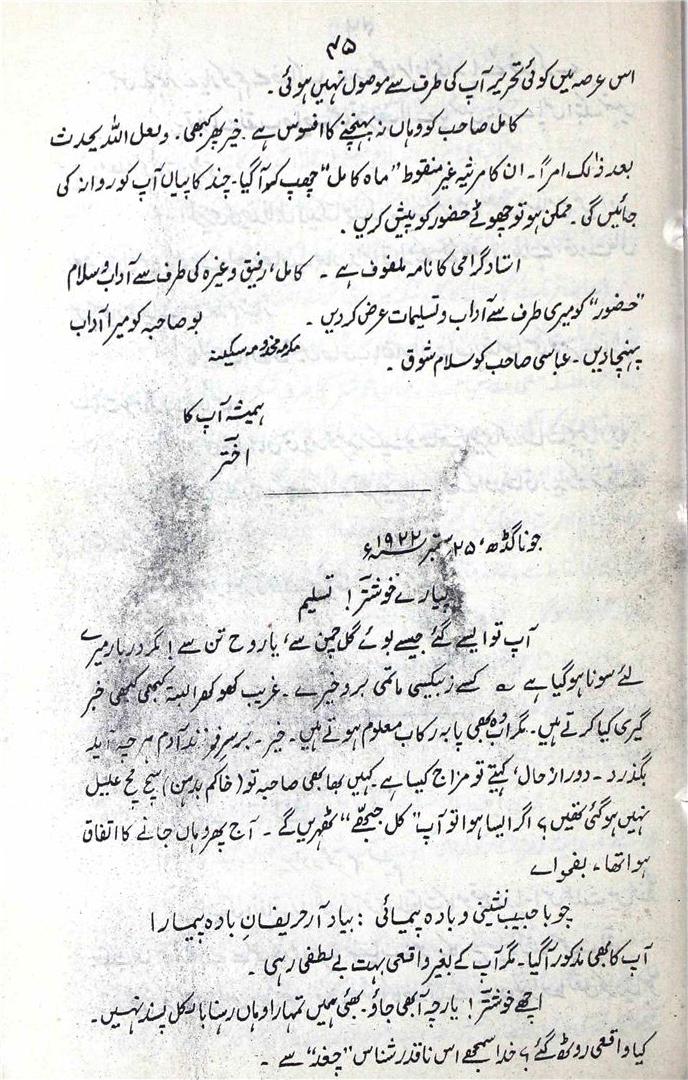 ۴۵
اس عرصہ میں کوئی تحریر آپ کی طرف سے موصول نہیں ہوئی ۔
کامل صاحب کو وہاں نہ پہنچنے کا افسوس ہے ۔ خیر پھر کبھی ۔ ولعل اللہ یحدث
بعد ذٰلک امراً ۔ ان کا مرثیہ غیر منقوط "ماہ کامل" چھپ کر آ گیا ۔ چند کاپیاں آپ کو روانہ کی
جائیں گی ۔ ممکن ہو تو چھوٹے حضور کو پیش کریں ۔
استاد گرامی کا نامہ ملفوف ہے ۔ کامل، رفیق وغیرہ کی طرف سے آداب و سلام
"حضور" کو میری طرف سے آداب و تسلیمات عرض کر دیں ۔ بو صاحبہ کو میرا آداب
پہنچا دیں ۔ عباسی صاحب کو سلام شوق ۔ سکینہ
ہمیشہ آپ کا
اختر
جوناگڈھ، ۲۵ ستمبر ۱۹۲۲ء
پیارے خوشتر! تسلیم
آپ تو ایسے گئے جیسے بوئے گل چمن سے، یا روح تن سے! مگر دربار میرے
لئے سونا ہو گیا ہے ؎ کسے زبیکسی ماتمی برو خیزے ۔ غریب کھوکھر البتہ کبھی کبھی خبر
گیری کیا کرتے ہیں ۔ مگر اب وہ بھی پا بہ رکاب معلوم ہوتے ہیں ۔ خیر ۔ بر سر فرزند آدم ہر چہ آید
بگذرد ۔ دور از حال، کہئے تو مزاج کیسا ہے ۔ کہیں بھابھی صاحبہ تو (خاکم بدہن) سچ مچ علیل
نہیں ہو گئی تھیں؟ اگر ایسا ہوا تو آپ "کل جبھے" ٹھہریں گے ۔ آج پھر وہاں جانے کا اتفاق
ہوا تھا ۔ بفحوائے
چو با حبیب نشینی و بادہ پیمائی : بیاد آر حریفانِ بادہ پیما را
آپ کا بھی مذکور آ گیا ۔ مگر آپ کے بغیر واقعی بہت بے لطفی رہی ۔
اچھے خوشتر! یار چہ آ بھی جاؤ ۔ بھئی ہمیں تمہارا وہاں رہنا بالکل پسند نہیں ۔
کیا واقعی روٹھ گئے؟ خدا سمجھے اس ناقدر شناس "چغد" سے ۔